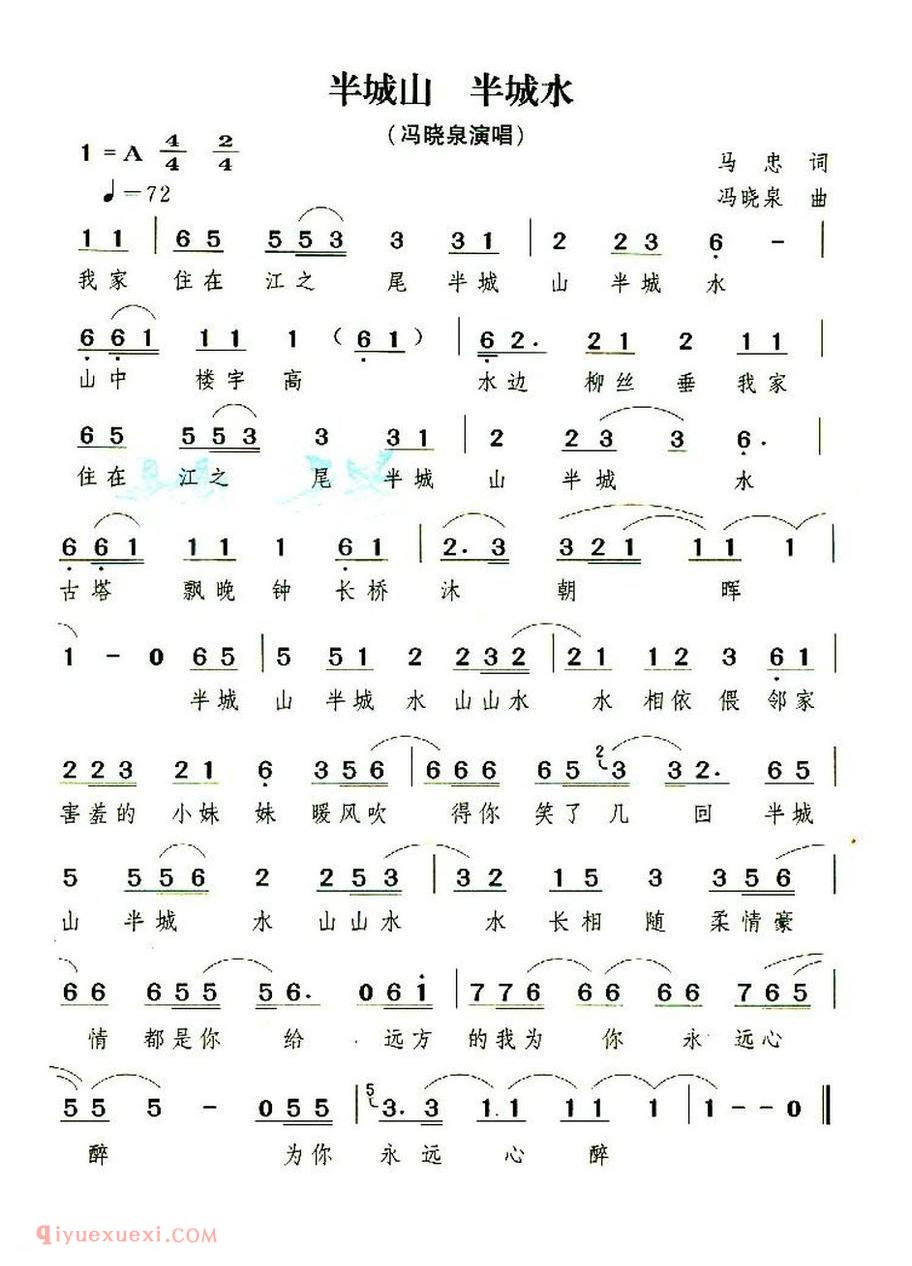 半城山 半城水
（冯晓泉演唱）
1=A 4/4 2/4
马忠 词
♩=72
冯晓泉 曲
1 1 | 6 5 5 5 3 3 3 1 | 2 2 2 3 6 - |
我家 住在 江之 尾 半城 山 半城 水
6 6 1 1 1 1 ( 6 1 ) | 6 2. 2 1 2 1 1 |
山中 楼宇 高 水边 柳丝 垂 我家
6 5 5 5 3 3 3 1 | 2 2 3 3 6. |
住在 江之 尾 半城 山 半城 水
6 6 1 1 1 1 6 1 | 2. 3 3 2 1 1 1 1 |
古塔 飘晚 钟 长桥 沐 朝 晖
1 - 0 6 5 | 5 5 1 2 2 3 2 | 2 1 1 2 3 6 1 |
半城 山 半城 水 山山水 水 相依 偎 邻家
2 2 3 2 1 6 3 5 6 | 6 6 6 6 5 2 3 3 2. 6 5 |
害羞的 小妹 妹 暖风吹 得你 笑了 几 回 半城
5 5 5 6 2 2 5 3 | 3 2 1 5 3 3 5 6 |
山 半城 水 山山水 水 长相 随 柔情豪
6 6 6 5 5 5 6. 0 6 i | 7 7 6 6 6 6 6 7 6 5 |
情 都是你 给 远方 的我为 你 永 远心
5 5 5 - 0 5 5 | 5 3. 3 1. 1 1 1 1 1 | 1 - - 0 ‖
醉 为你 永 远 心 醉
qiyuexuexi.com